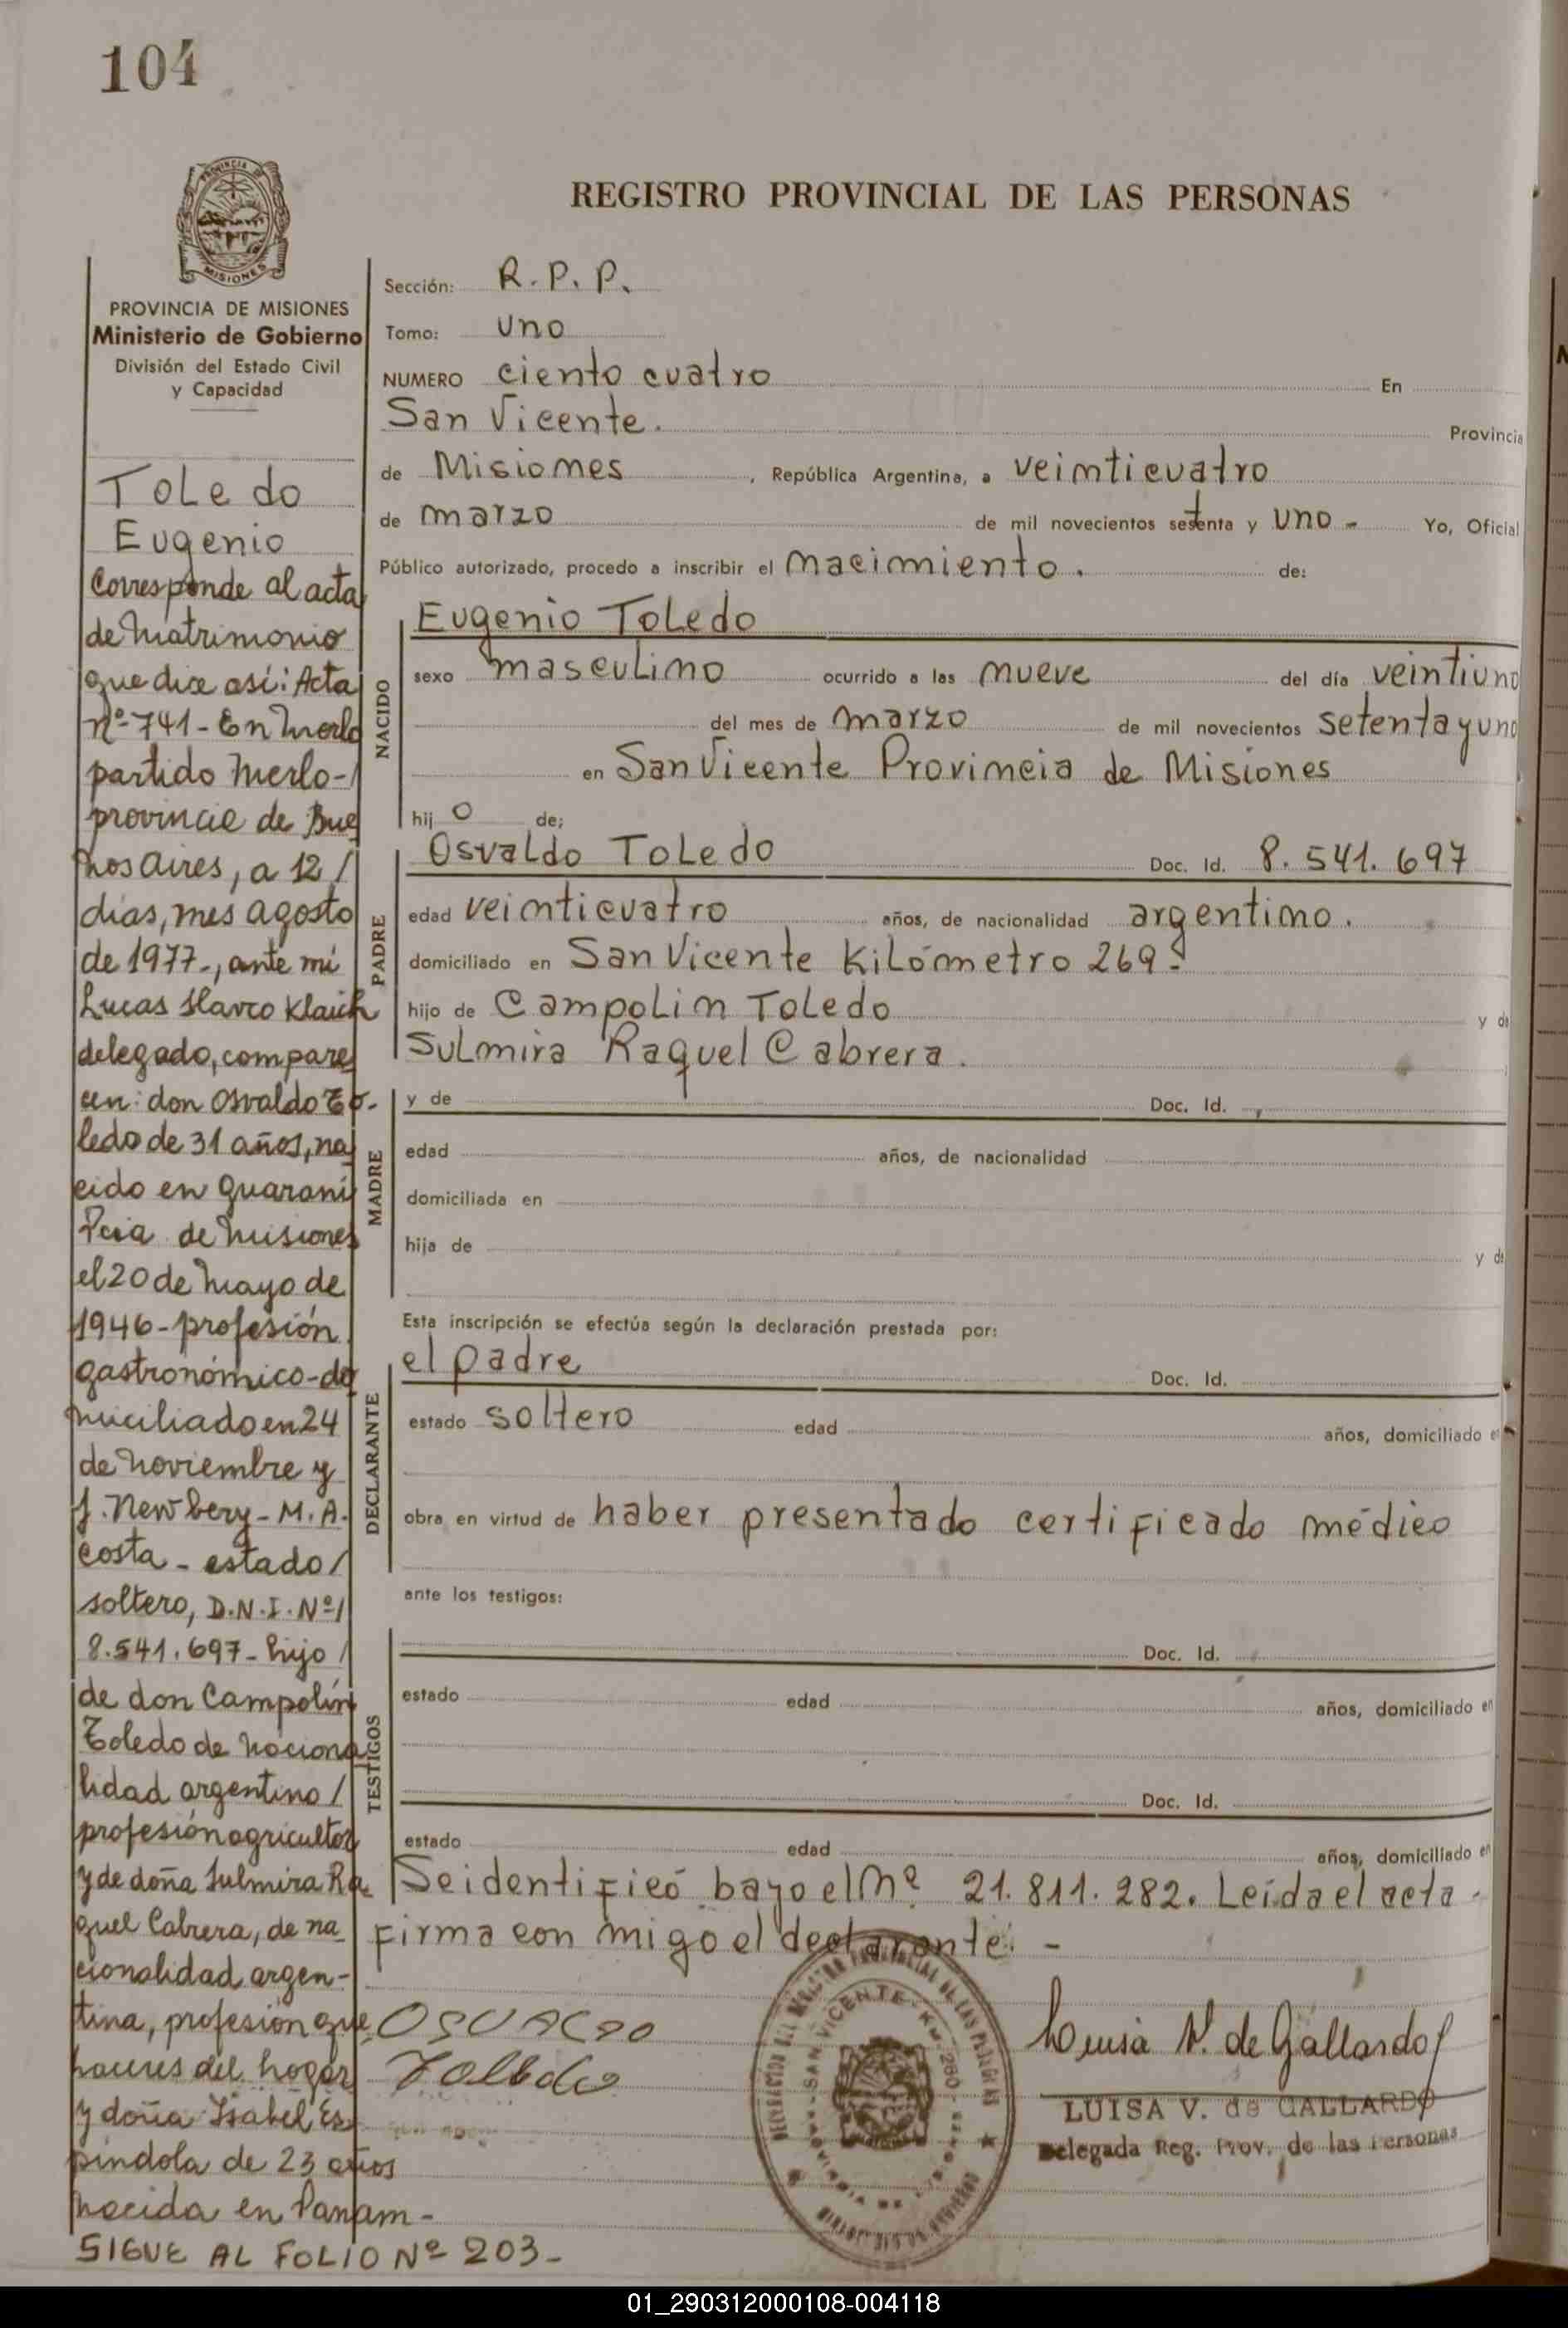 104
PROVINCIA DE MISIONES
Ministerio de Gobierno
División del Estado Civil
y Capacidad
ToLedo
Eugenio
Corresponde al acta
de Matrimonio
que dice así: Acta
nº 741 - En Merlo
partido Merlo-/
provincia de Bue
nos aires, a 12 /
días, mes agosto
de 1977-, ante mí
Lucas Marco Klaich
delegado, compare
cen: don Osvaldo To-
ledo de 31 años, na
cido en Guaraní
Pcia de Misiones
el 20 de Mayo de
1946 - profesión
gastronómico - do
miciliado en 24
de Noviembre y
J. Newbery - M. A.
costa - estado /
soltero, D.N.I. Nº /
8.541.697 - hijo /
de don Campolín
Toledo de naciona
lidad argentino /
profesión agricultor
y de doña Sulmira Ra
quel Cabrera, de na
cionalidad argen-
tina, profesión que
haceres del hogar
y doña Isabel Es
píndola de 23 años
nacida en Panam-
SIGUE AL FOLIO Nº 203-
REGISTRO PROVINCIAL DE LAS PERSONAS
Sección: R. P. P.
Tomo: uno
NUMERO ciento cuatro En
San Vicente. Provincia
de Misiones , República Argentina, a veinticuatro
de marzo de mil novecientos setenta y uno - Yo, Oficial
Público autorizado, procedo a inscribir el nacimiento. de:
NACIDO
Eugenio ToLedo
sexo masculino ocurrido a las nueve del día veintiuno
del mes de marzo de mil novecientos setenta y uno
en San Vicente Provincia de Misiones
hij o de;
PADRE
Osvaldo ToLedo Doc. Id. 8.541.697
edad veinticuatro años, de nacionalidad argentino.
domiciliado en San Vicente Kilómetro 269-
hijo de Campolin Toledo y de
Sulmira Raquel Cabrera.
MADRE
y de Doc. Id.
edad años, de nacionalidad
domiciliada en
hija de y de
Esta inscripción se efectúa según la declaración prestada por:
DECLARANTE
el padre Doc. Id.
estado soltero edad años, domiciliado en
obra en virtud de haber presentado certificado médico
ante los testigos:
TESTIGOS
Doc. Id.
estado edad años, domiciliado en
Doc. Id.
estado edad años, domiciliado en
Se identificó bajo el Nº 21.811.282. Leída el acta -
firma con migo el declarante. -
OSVALDO
Toledo
Luisa V. de Gallardo
LUISA V. de GALLARDO
Delegada Reg. Prov. de las Personas
SAN VICENTE
MISIONES
01_290312000108-004118